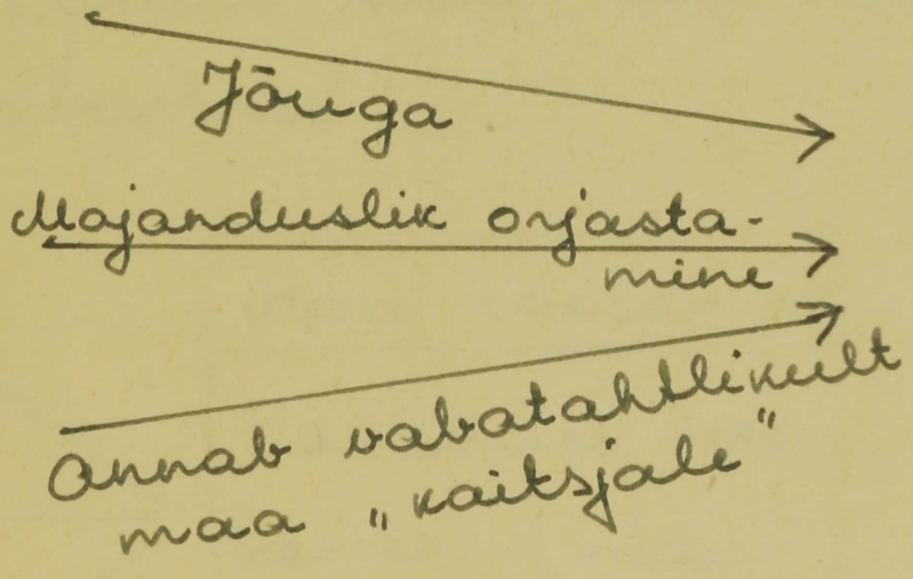 Jõuga
Majanduslik orjasta-
mine
Annab vabatahtlikult
maa „kaitsjale”